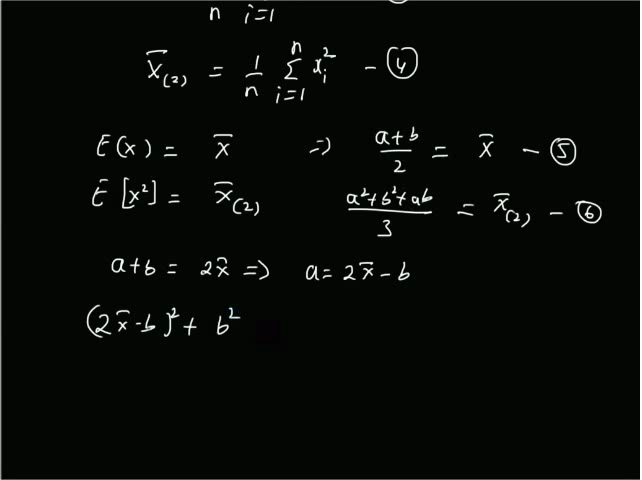 n i=1
X̄₍₂₎ = 1/n Σⁿᵢ₌₁ xᵢ² - ④
E(x) = x̄ => a+b/2 = x̄ - ⑤
E[x²] = x̄₍₂₎ a²+b²+ab/3 = x̄₍₂₎ - ⑥
a+b = 2x̄ => a = 2x̄ - b
(2x̄-b)² + b²